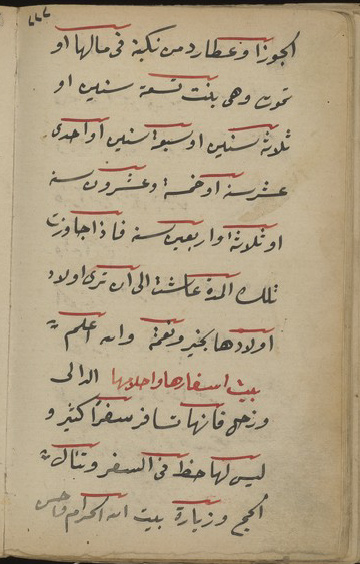 ٢٢٢
الجوزا وعطارد من نكبة فى مالها او
تموت وهى بنت تسعة سنين او
ثلاثة سنين او سبعة سنين او احدى
عشر سنه او خمسة وعشرون سنه
او ثلاثة واربعين سنه فاذا جاوزت
تلك المدة عاشت الى ان ترى اولاد
اولادها بخير ونعمة والله اعلم
بيت اسفارها واحلامها الدالى
وزحل فانها تسافر سفرا كثير و
ليس لها حظ فى السفر وتنال
الحج وزيارة بيت الله الحرام